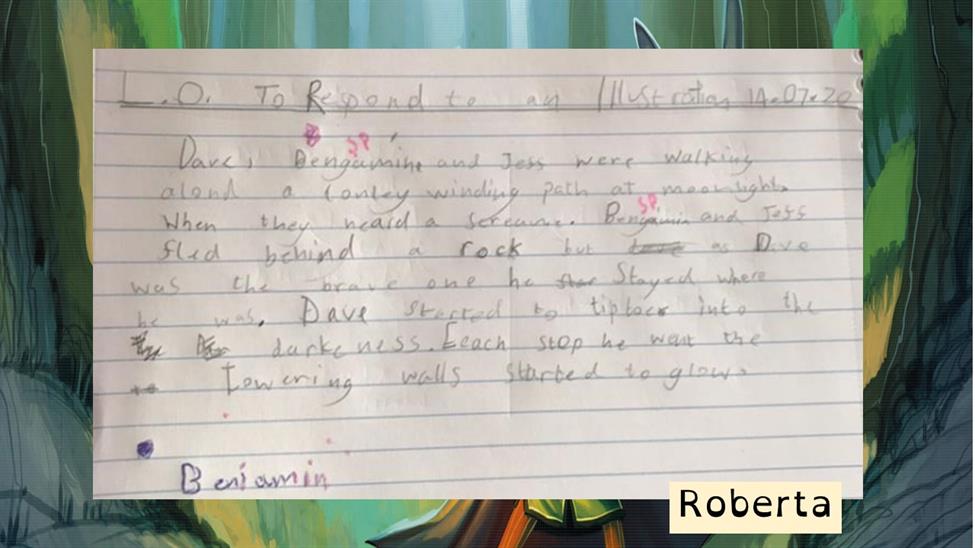 L.O. To Respond to an Illustration 14.07.20
Dave, Bengamine and Jess were walking
alond a lonley winding path at moonlight.
When they heard a screame. Bengamin and Jess
fled behind a rock but as Dave
was the brave one he Stayed where
he was. Dave started to tiptoe into the
darkeness. Eeach step he went the
towering walls started to glow.
Benjamin
Roberta